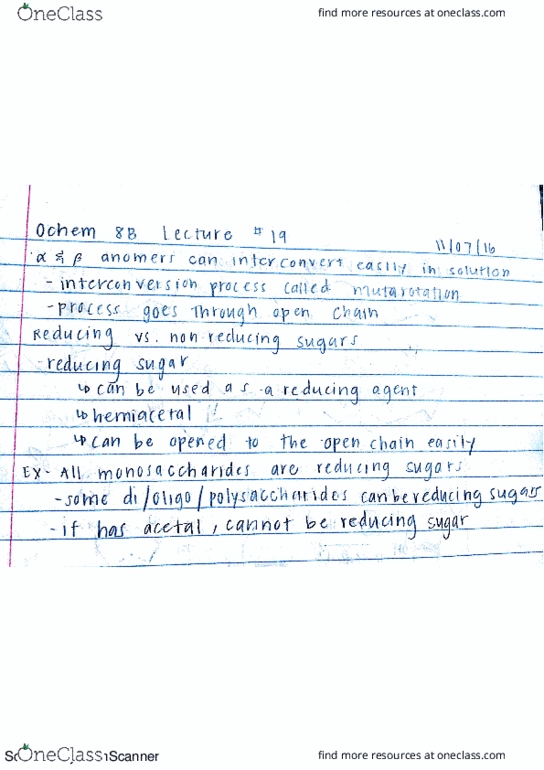 OneClass
find more resources at oneclass.com
Ochem 8B Lecture #19
11/07/16
α & β anomers can interconvert easily in solution
- interconversion process called mutarotation
- process goes through open chain
Reducing vs. non reducing sugars
- reducing sugar
↳ can be used as a reducing agent
↳ hemiacetal !!
↳ can be opened to the open chain easily
EX- All monosaccharides are reducing sugars
- some di/oligo/polysaccharides can be reducing sugars
- if has acetal, cannot be reducing sugar
OneClass
Scanner
find more resources at oneclass.com